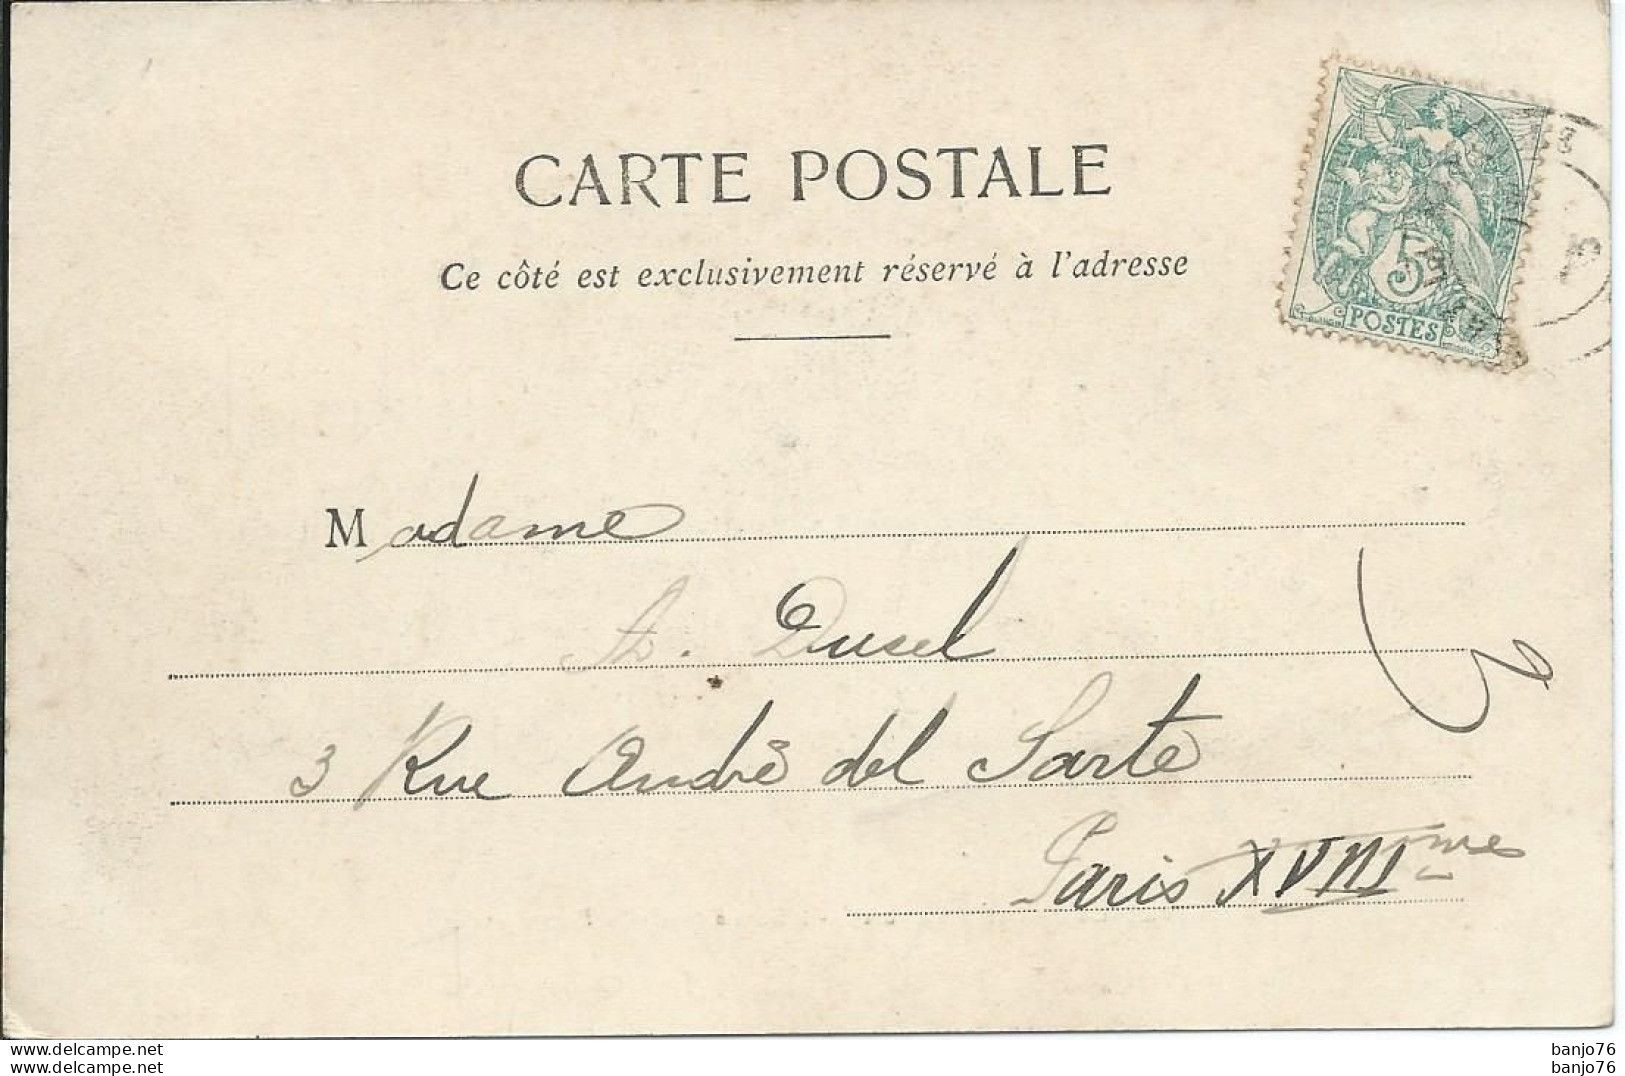 CARTE POSTALE
Ce côté est exclusivement réservé à l'adresse
5
POSTES
Madame
A. Dusel
3 Rue André del Sarte
Paris XVIIIme
www.delcampe.net
www.delcampe.net
banjo76
banjo76